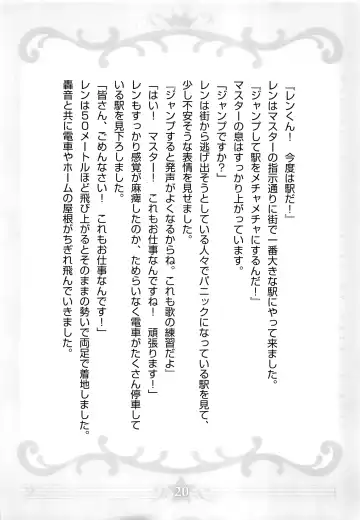 『レンくん！　今度は駅だ！』
レンはマスターの指示通りに街で一番大きな駅にやって来ました。
『ジャンプして駅をメチャメチャにするんだ！』
マスターの息はすっかり上がっています。
「ジャンプですか？」
レンは街から逃げ出そうとしている人々でパニックになっている駅を見て、
少し不安そうな表情を見せました。
『ジャンプすると発声がよくなるからね。これも歌の練習だよ』
「はい！　マスター！　これもお仕事なんですね！　頑張ります！」
レンもすっかり感覚が麻痺したのか、ためらいなく電車がたくさん停車して
いる駅を見下ろしました。
「皆さん、ごめんなさい！　これもお仕事なんです！」
レンは５０メートルほど飛び上がるとそのままの勢いで両足で着地しました。
轟音と共に電車やホームの屋根がちぎれ飛んでいきました。
20